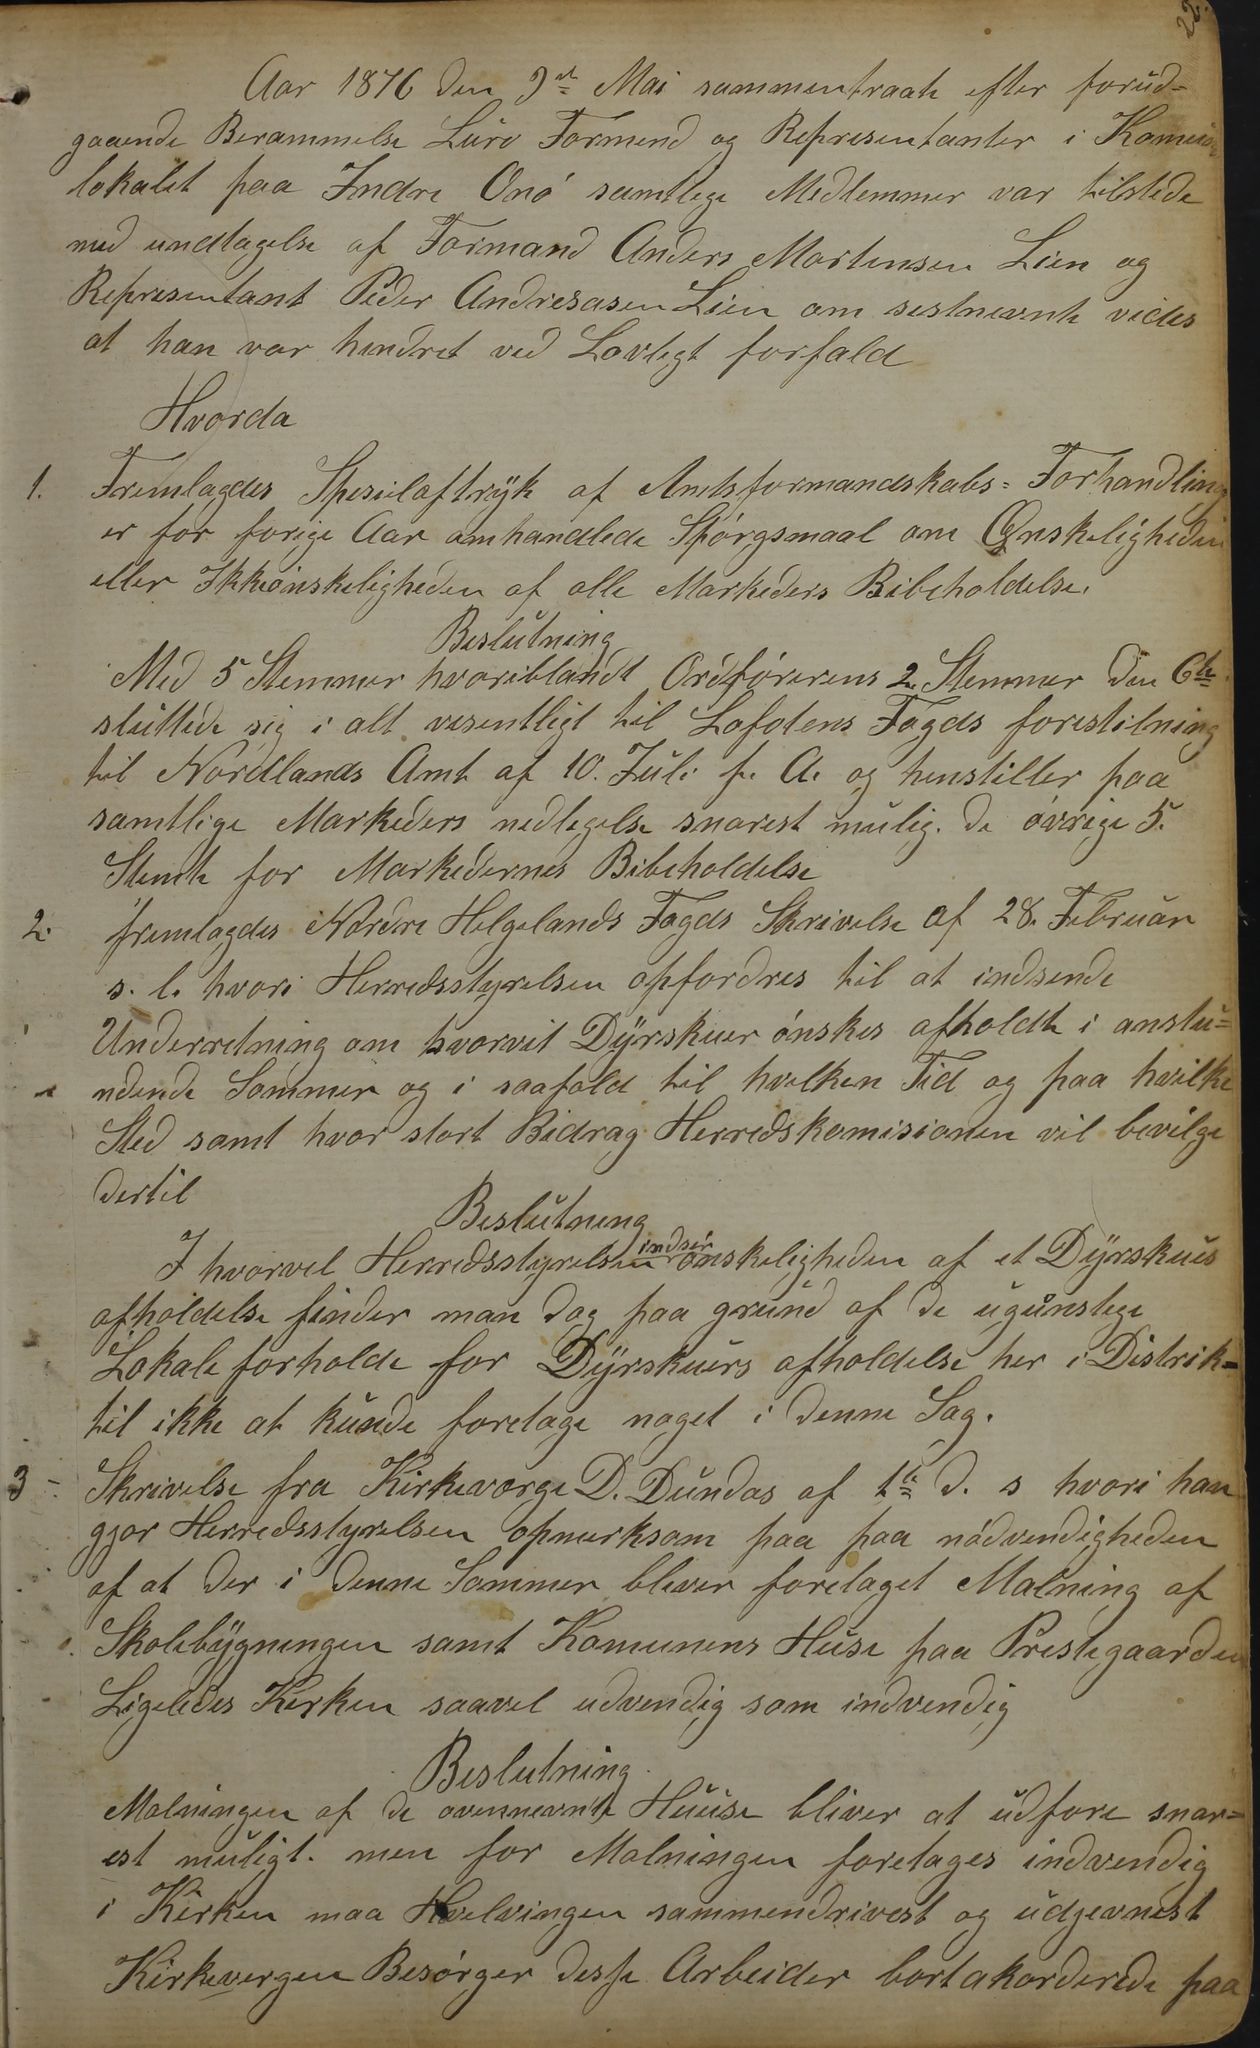 22.
Aar 1876 den 3die Mai sammentraate efter forud-
gaaende Berammelse Lurø Formend og Representanter i Komune
lokalet paa Indre Onø samtlege Medlemmer var tilstede
med undtagelse af Formand Anders Mortensen Lien og
Representant Peder Andresasen Lien om sestnevnte vides
at han var hendret ved Lovlegt forfald
Hvorda
1. Fremlagdes Spesielaftryk af Amtsformandskabs-Forhandling
er for forige Aar omhandlede Spørgsmaal om Ønskeligheden
eller Ikkeønskeligheden af alle Markeders Bibeholdelse.
Beslutning
Med 5 Stemmer hvoriblandt Ordførerens 2. Stemmer den 6te
sluttede sig i alt vesentligt til Lofotens Fogds forestilning
til Nordlands Amt af 10. Juli f. A. og henstiller paa
samtlige Markeders nedlegelse snarest mulig. de øvrige 5.
Stemte for Markedernes Bibeholdelse
2. fremlagdes Nordre Helgelands Fogds Skrivelse af 28. Februar
s. l. hvori Herredsstyrelsen opfordres til at indsende
Underretning om hvorvit Dyrskuer ønskes afholdte i anstu-
ndende Sommer og i saafald til hvelken Tid og paa hvilke
Sted samt hvor stort Bidrag Herredskomisionen vil bevilge
dertil
Beslutning
I hvorvel Herredsstyrelsen indser ønskeligheden af et Dyrskues
afholdelse finder man dog paa grund af de ugunstege
Lokale forholde for Dyrskuers afholdelse her i Distrik-
til ikke at kunde foretage noget i denne Sag.
3- Skrivelse fra Kirkeverge D. Dundas af 1te d. s hvori han
gjør Herredsstyrelsen opmerksom paa paa nødvendigheden
af at der i denne Sommer bliver foretaget Malning af
Skolebygningen samt Komunens Huse paa Prestegaarden
Ligeledes Kirken saavel udvendig som indvendig
Beslutning
Malningen af de ovennevnte Huuse bliver at udføre snar-
est muligt. men før Malningen foretages indvendig
i Kirken maa Hvelvingen sammendrivest og udjevnest
Kirkevergen Besørger desse Arbeider bortakorderede paa